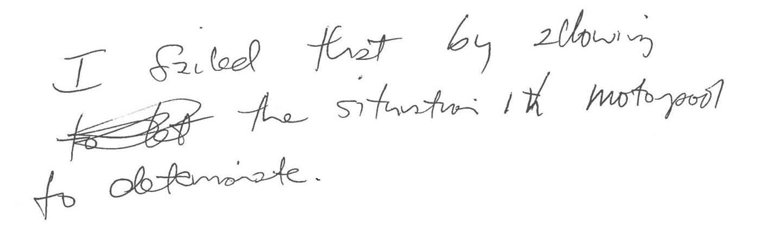 I failed that by allowing
the situation in motorpool
to deteriorate.